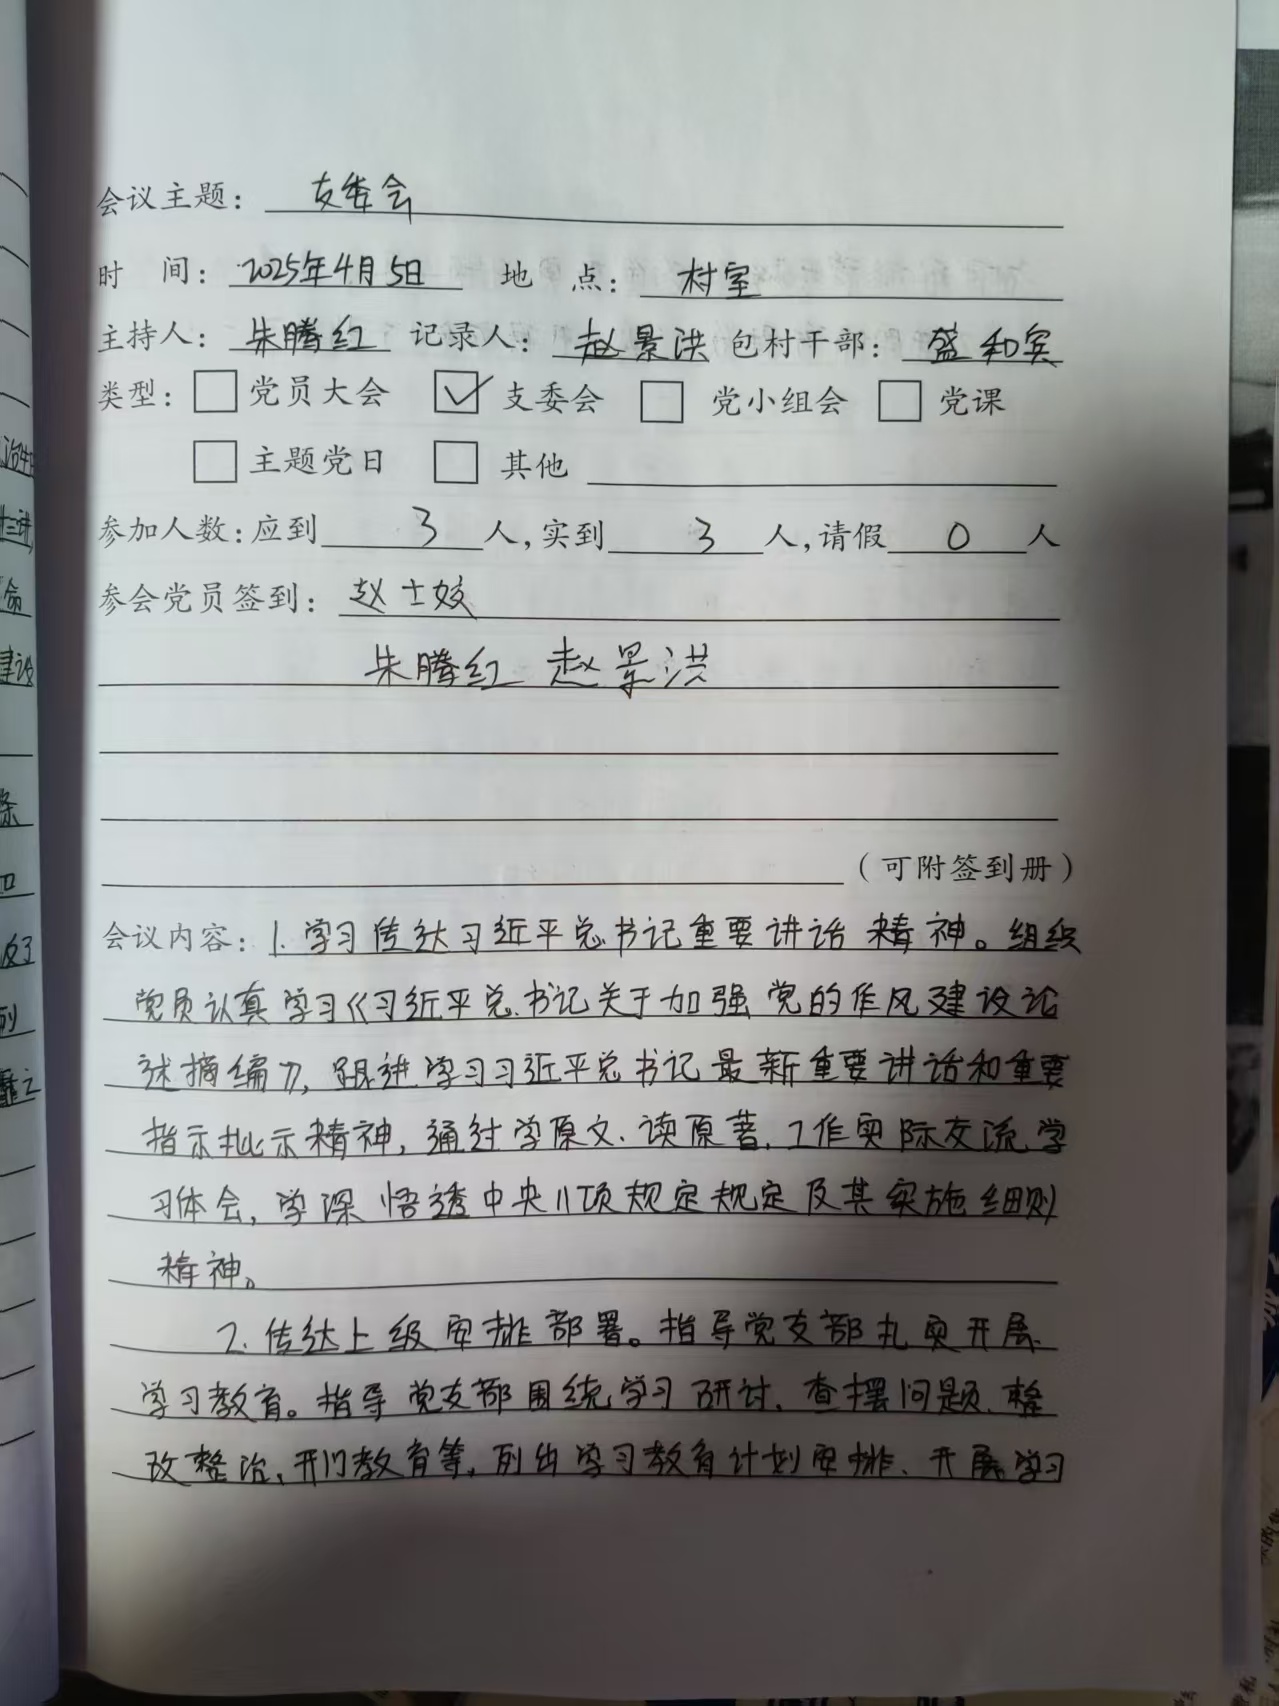 会议主题： 支委会
时 间： 2025年4月5日 地 点： 村室
主持人： 朱腾红 记录人： 赵景洪 包村干部： 盛和实
类型： 党员大会 ✓ 支委会 党小组会 党课
主题党日 其他
参加人数：应到 3 人，实到 3 人，请假 0 人
参会党员签到： 赵士姣
朱腾红 赵景洪
（可附签到册）
会议内容： 1. 学习传达习近平总书记重要讲话精神。组织
党员认真学习《习近平总书记关于加强党的作风建设论
述摘编》，跟进学习习近平总书记最新重要讲话和重要
指示批示精神，通过学原文、读原著，工作实际交流学
习体会，学深悟透中央八项规定规定及其实施细则
精神。
2. 传达上级安排部署。指导党支部扎实开展
学习教育。指导党支部围绕学习研讨、查摆问题、整
改整治、开门教育等，列出学习教育计划安排、开展学习